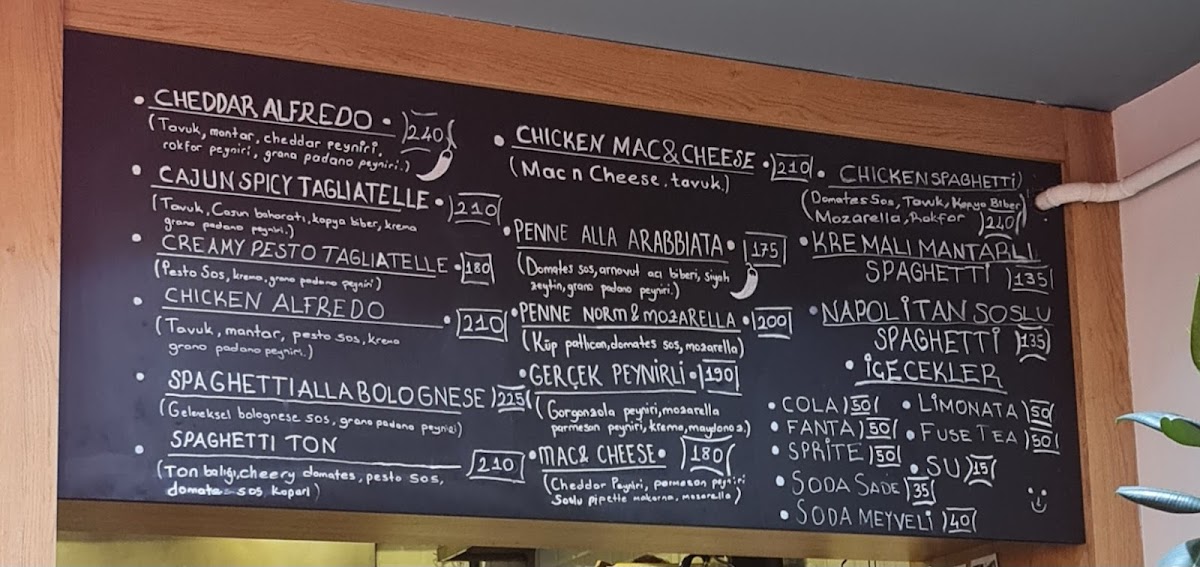 • CHEDDAR ALFREDO • 240
(Tavuk, mantar, cheddar peyniri,
rokfor peyniri, grana padano peyniri.)
• CAJUN SPICY TAGLIATELLE • 210
(Tavuk, Cajun baharatı, kapya biber, krema
grana padano peyniri.)
• CREAMY PESTO TAGLIATELLE • 180
(Pesto Sos, krema, grana padano peyniri)
• CHICKEN ALFREDO • 210
(Tavuk, mantar, pesto sos, krema
grano padano peyniri.)
• SPAGHETTI ALLA BOLOGNESE 225
(Geleneksel bolognese sos, grano padano peyniri)
• SPAGHETTI TON 210
(Ton balığı, cheery domates, pesto sos,
domates sos, kapari)
• CHICKEN MAC & CHEESE • 210
(Mac n Cheese, tavuk.)
• PENNE ALLA ARABBIATA • 175
(Domates sos, arnavut acı biberi, siyah
zeytin, grano padano peyniri.)
• PENNE NORM & MOZARELLA • 200
(Küp patlıcan, domates sos, mozarella)
• GERÇEK PEYNİRLİ • 190
(Gorgonzola peyniri, mozarella
parmesan peyniri, krema, maydonoz.)
• MAC & CHEESE • 180
(Cheddar Peyniri, parmesan peyniri
Soslu pipette makarna, mozarella)
• CHICKEN SPAGHETTİ
(Domates Sos, Tavuk, Kapya Biber
Mozarella, Rokfor 240
• KREMALI MANTARLI
SPAGHETTİ 135
• NAPOLİTAN SOSLU
SPAGHETTİ 135
• İÇECEKLER
• COLA 50
• FANTA 50
• SPRİTE 50
• SODA SADE 35
• SODA MEYVELİ 40
• LİMONATA 50
• FUSE TEA 50
• SU 15